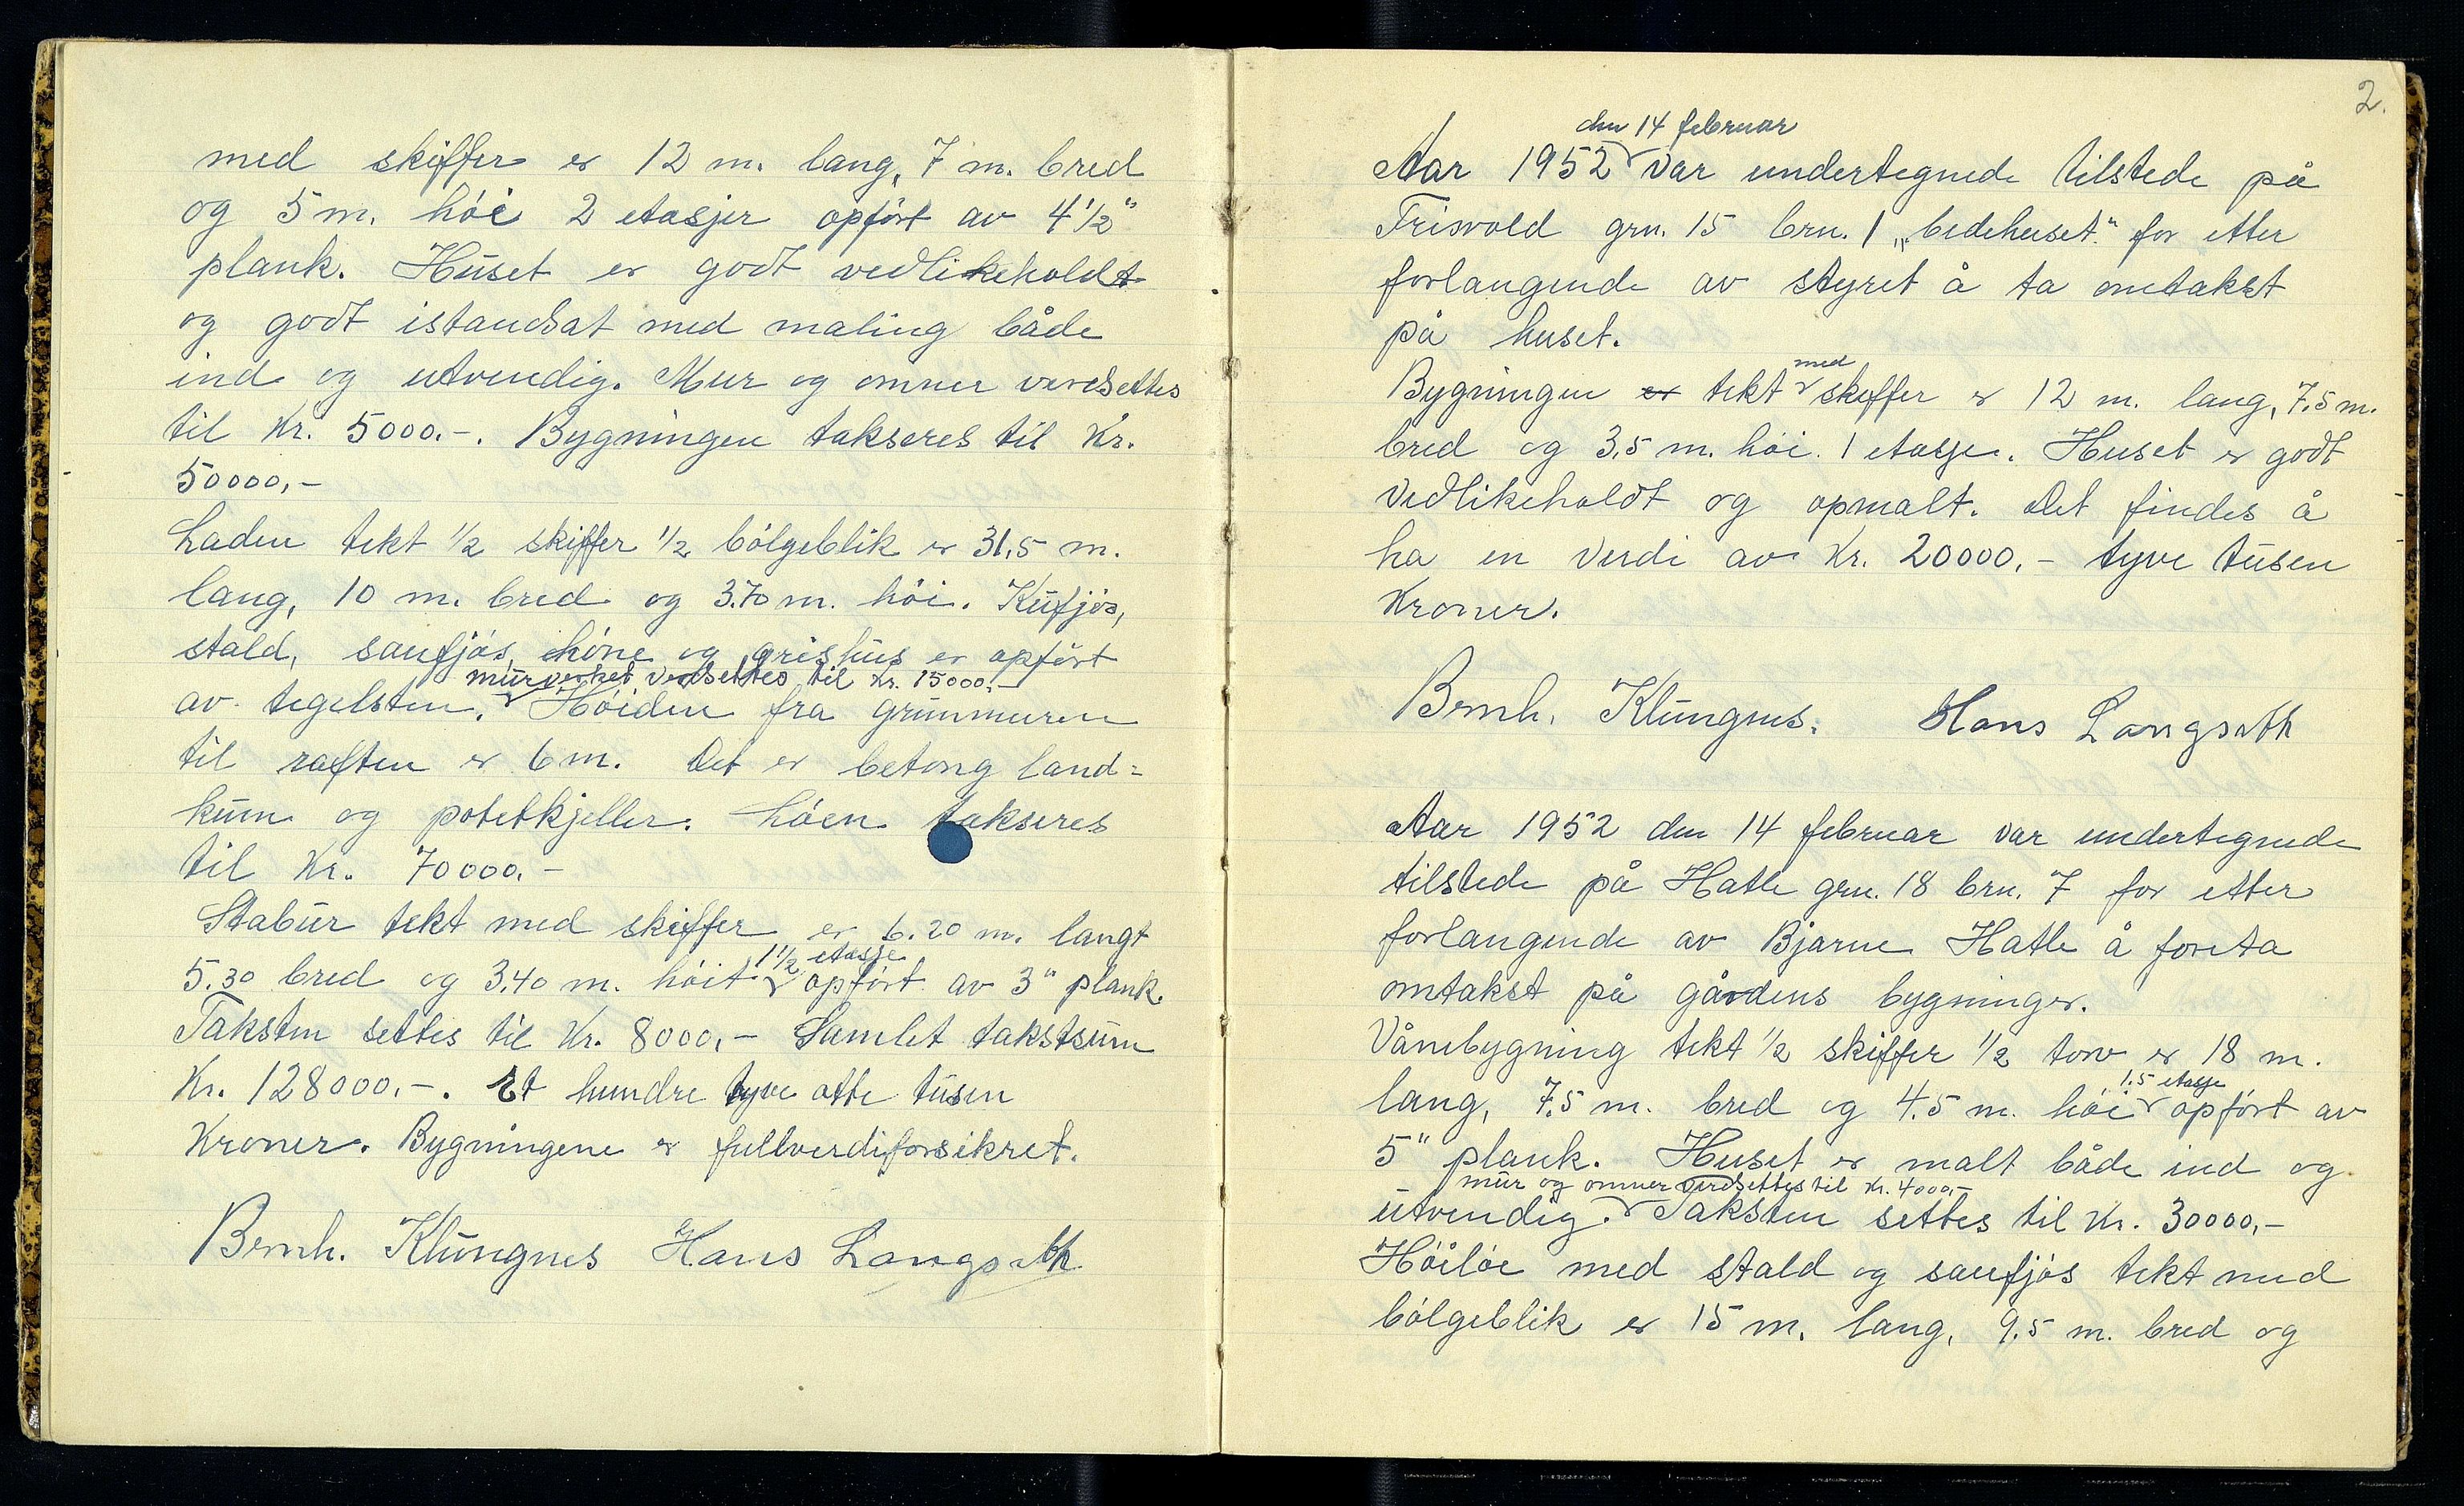 med skiffer er 12 m. lang, 7 m. bred
og 5 m. hói 2 etasjer opfórt av 4 1/2"
plank. Huset er godt vedlikeholdt
og godt istandsat med maling både
ind og utvendig. Mur og omner verdsettes
til Kr. 5000.-. Bygningen takseres til Kr.
50000,-
Laden tekt 1/2 skiffer 1/2 bólgeblik er 31,5 m.
lang, 10 m. bred og 3.70 m. hói. Kufjós,
stald, saufjós, hóne og grishus er opfórt
murverket verdsettes til Kr. 15000,-
av tegelsten. Hóiden fra grunmuren
til raften er 6 m. Det er betong land=
kum og potetkjeller. Lóen takseres
til Kr. 70000.-
Stabur tekt med skiffer er 6.20 m. langt
1 1/2 etasje
5.30 bred og 3,40 m. hóit opfórt av 3" plank.
Taksten settes til Kr. 8000,- Samlet takstsum
Kr. 128000.-. Et hundre tyve otte tusen
Kroner. Bygningene er fullverdiforsikret.
Bernh. Klungnes Hans Langseth
2.
den 14 februar
Aar 1952 var undertegnede tilstede på
Frisvold grn. 15 brn. 1 „bedehuset" for etter
forlangende av styret å ta omtakst
på huset.
med
Bygningen er tekt skiffer er 12 m. lang, 7.5 m.
bred og 3,5 m. hói. 1 etasje. Huset er godt
vedlikeholdt og opmalt. Det findes å
ha en verdi av Kr. 20000.- tyve tusen
Kroner.
Bernh. Klungnes. Hans Langseth
Aar 1952 den 14 februar var undertegnede
tilstede på Hatle grn. 18 brn. 7 for etter
forlangende av Bjarne Hatle å foreta
omtakst på gårdens bygninger.
Vånebygning tekt 1/2 skiffer 1/2 torv er 18 m.
1.5 etasje
lang, 7.5 m. bred og 4.5 m. hói opfórt av
5" plank. Huset er malt både ind og
mur og omner verdsettes til Kr. 4000,-
utvendig. Taksten settes til Kr. 30000,-
Hóilóe med stald og saufjós tekt med
bólgeblik er 15 m. lang, 9.5 m. bred og